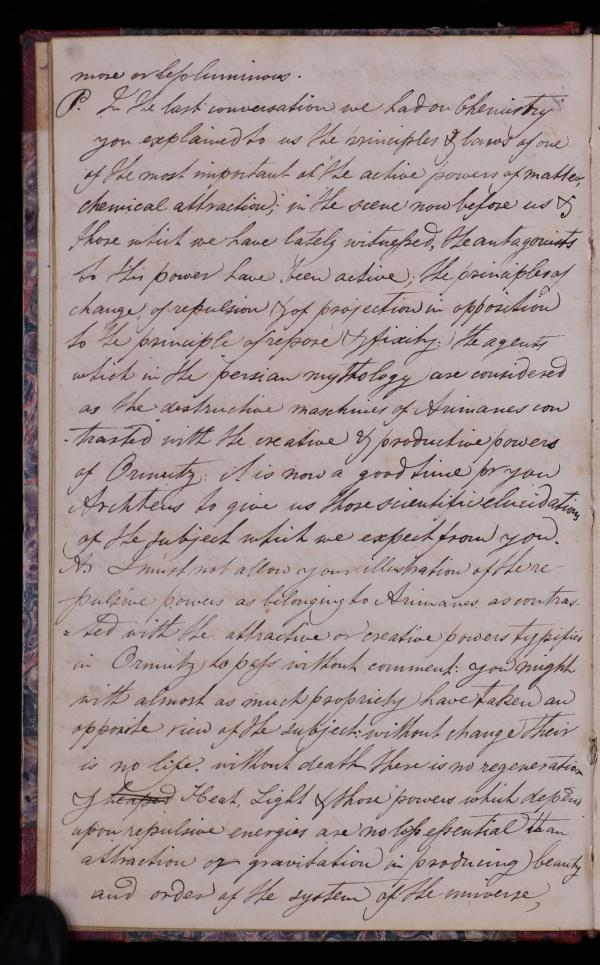 more or less luminous.
P. In the last conversation we had on Chemistry
you explained to us the principles & laws of one
of the most important of the active powers of matter,
chemical attraction; in the scene now before us &
those which we have lately witnessed, the antagonists
to this power have been active; the principles of
change, of repulsion & of projection in opposition
to the principle of repose & fixity: the agents
which in the persian mythology are considered
as the destructive maschines of Arimanes con
-trasted with the creative & productive powers
of Ormutz: it is now a good time for you
Archteus to give us those scientific elucidations
of the subject which we expect from you.
Ar I must not allow your illustration of the re-
pulsive powers as belonging to Arimanes as contras
=ted with the attractive or creative powers typified
in Ormutz to pass without comment: you might
with almost as much propriety have taken an
opposite view of the subject: without change their
is no life. without death there is no regeneration
& Heat, Light & those powers which depend
upon repulsive energies are no less essential than
attraction or gravitation in producing beauty
and order of the system of the universe,